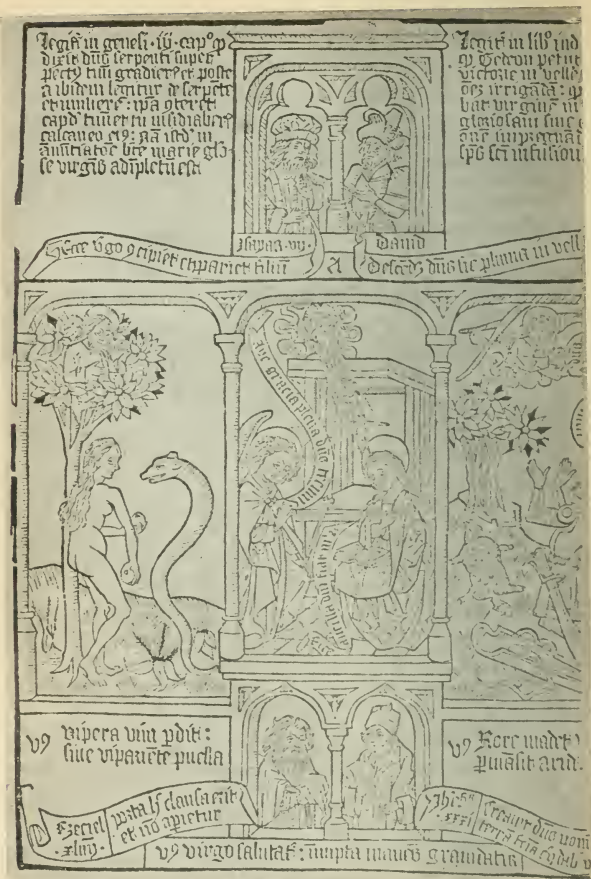 Legit' in genesi · iij · cap° q
dixit dn̄s serpenti super
pectꝰ tuū gradierꝭ et poste
a ibidem legitur de serpēte
et muliere: ip̄a ꝯteret
capd' tuū et tu insidiaberꝭ
calcaneo eiꝰ: nā istd' in
ānūtiatōe btē marie glō
se virgīs adīpletū est
Legit in lib° iud
q Gedeon petiit
victorie in velle
irrigādā: q
bat virginē
gl̄osam sine c
one impregnā
sp̄s sc̄i infusion
Ecce v̄go ꝯcipiet et pariet filiū
Isayas · vij ·
A
David
Descēdꝫ dn̄s sic pluuia in vell
ave gracia plena dn̄s tecum
Ecce ancilla dn̄i fiat m
vꝰ vipera vim ꝑdit:
sine vi pariēte puella
vꝰ Rore madet
ꝑmāsit arid
Ezeciel
· xliiij ·
porta h̄ clausa erit
et nō aperietur
Ihr̄e
xxxi
Creauit dn̄s nouū
terrā
vꝰ virgo salutat': īnupta manēs grauidatur